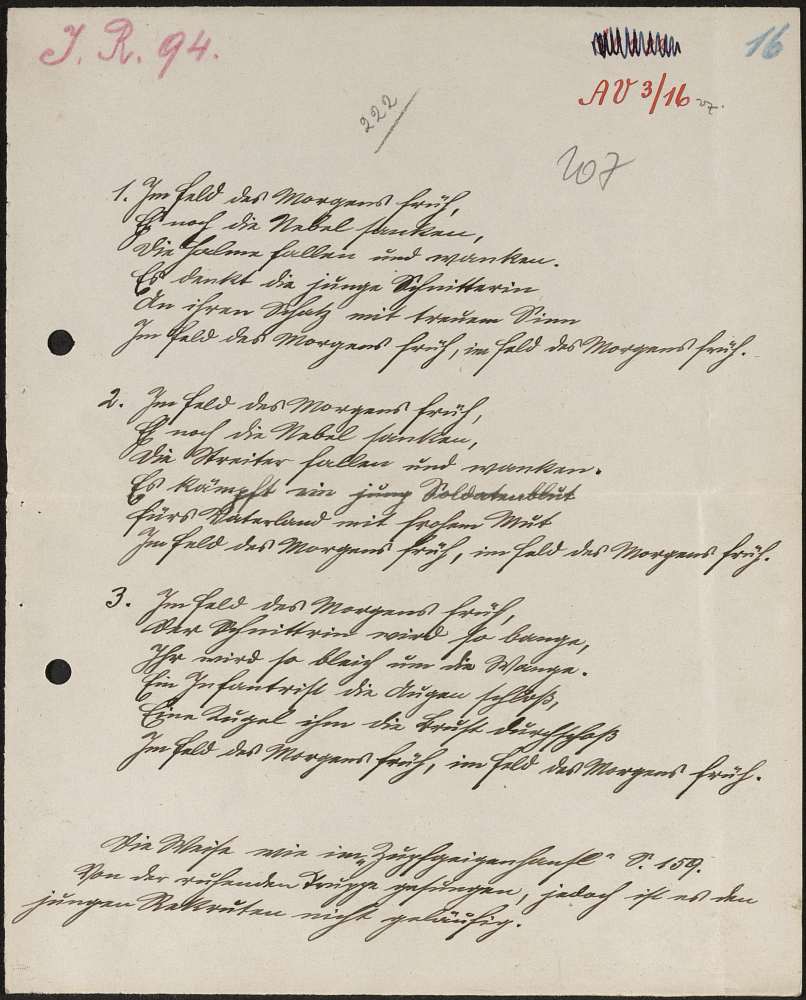 J. R. 94.
16
AV 3/16
222
207
1. Im Feld des Morgens früh,
Eh noch die Nebel sanken,
Die Halme fallen und wanken.
Es denkt die junge Schnitterin
An ihren Schatz mit treuem Sinn
Im Feld des Morgens früh, im Feld des Morgens früh.
2. Im Feld des Morgens früh,
Eh noch die Nebel sanken,
Die Streiter fallen und wanken.
Es kämpft ein jung Soldatenblut
Fürs Vaterland mit frohem Mut
Im Feld des Morgens früh, im Feld des Morgens früh.
3. Im Feld des Morgens früh,
Der Schnittrin wird so bange,
Ihr wird so bleich um die Wange.
Ein Infantrist die Augen schloß,
Eine Kugel ihm die Brust durchschoß
Im Feld des Morgens früh, im Feld des Morgens früh.
Die Weise wie im „Zupfgeigenhansl" S. 159.
Von der ruhenden Truppe gesungen, jedoch ist es den
jungen Rekruten nicht geläufig.